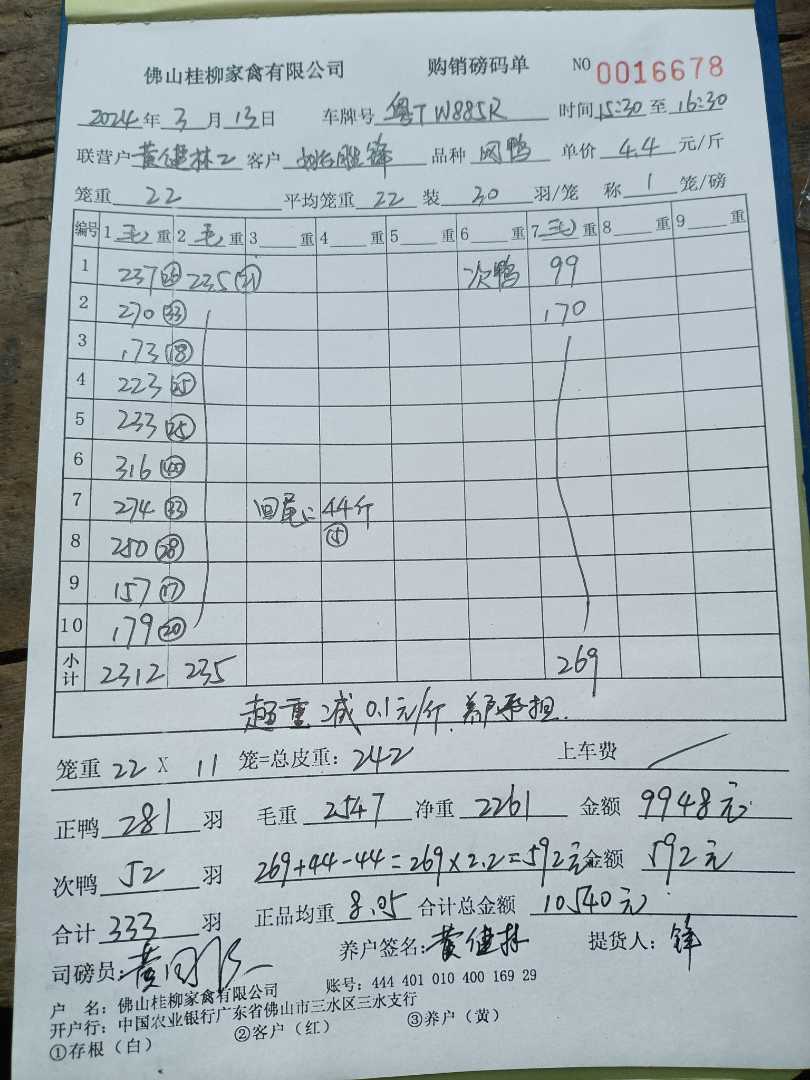 佛山桂柳家禽有限公司 购销磅码单 NO 0016678
2024年3月13日 车牌号 粤T W885R 时间15:30至16:30
联营户 黄健林2 客户 胜锋 品种 网鸭 单价 4.4 元/斤
笼重 22 平均笼重 22 装 30 羽/笼 称 1 笼/磅
编号 1 毛 重 2 毛 重 3 重 4 重 5 重 6 重 7 毛 重 8 重 9 重
1 237 (26) 235 (21) 次鸭 99
2 270 (33) 170
3 173 (18)
4 223 (25)
5 233 (25)
6 316 (40)
7 274 (33) 回尾: 44斤
8 250 (28) (5)
9 157 (17)
10 179 (20)
小计 2312 235 269
超重减0.1元/斤. 养户承担.
笼重 22 X 11 笼=总皮重: 242 上车费
正鸭 281 羽 毛重 2547 净重 2261 金额 9948元
次鸭 52 羽 269+44-44=269×2.2=592元 金额 592元
合计 333 羽 正品均重 8.05 合计总金额 10540元
司磅员: 黄 养户签名: 黄健林 提货人: 锋
户 名: 佛山桂柳家禽有限公司 账号: 444 401 010 400 169 29
开户行: 中国农业银行广东省佛山市三水区三水支行
①存根（白） ②客户（红） ③养户（黄）